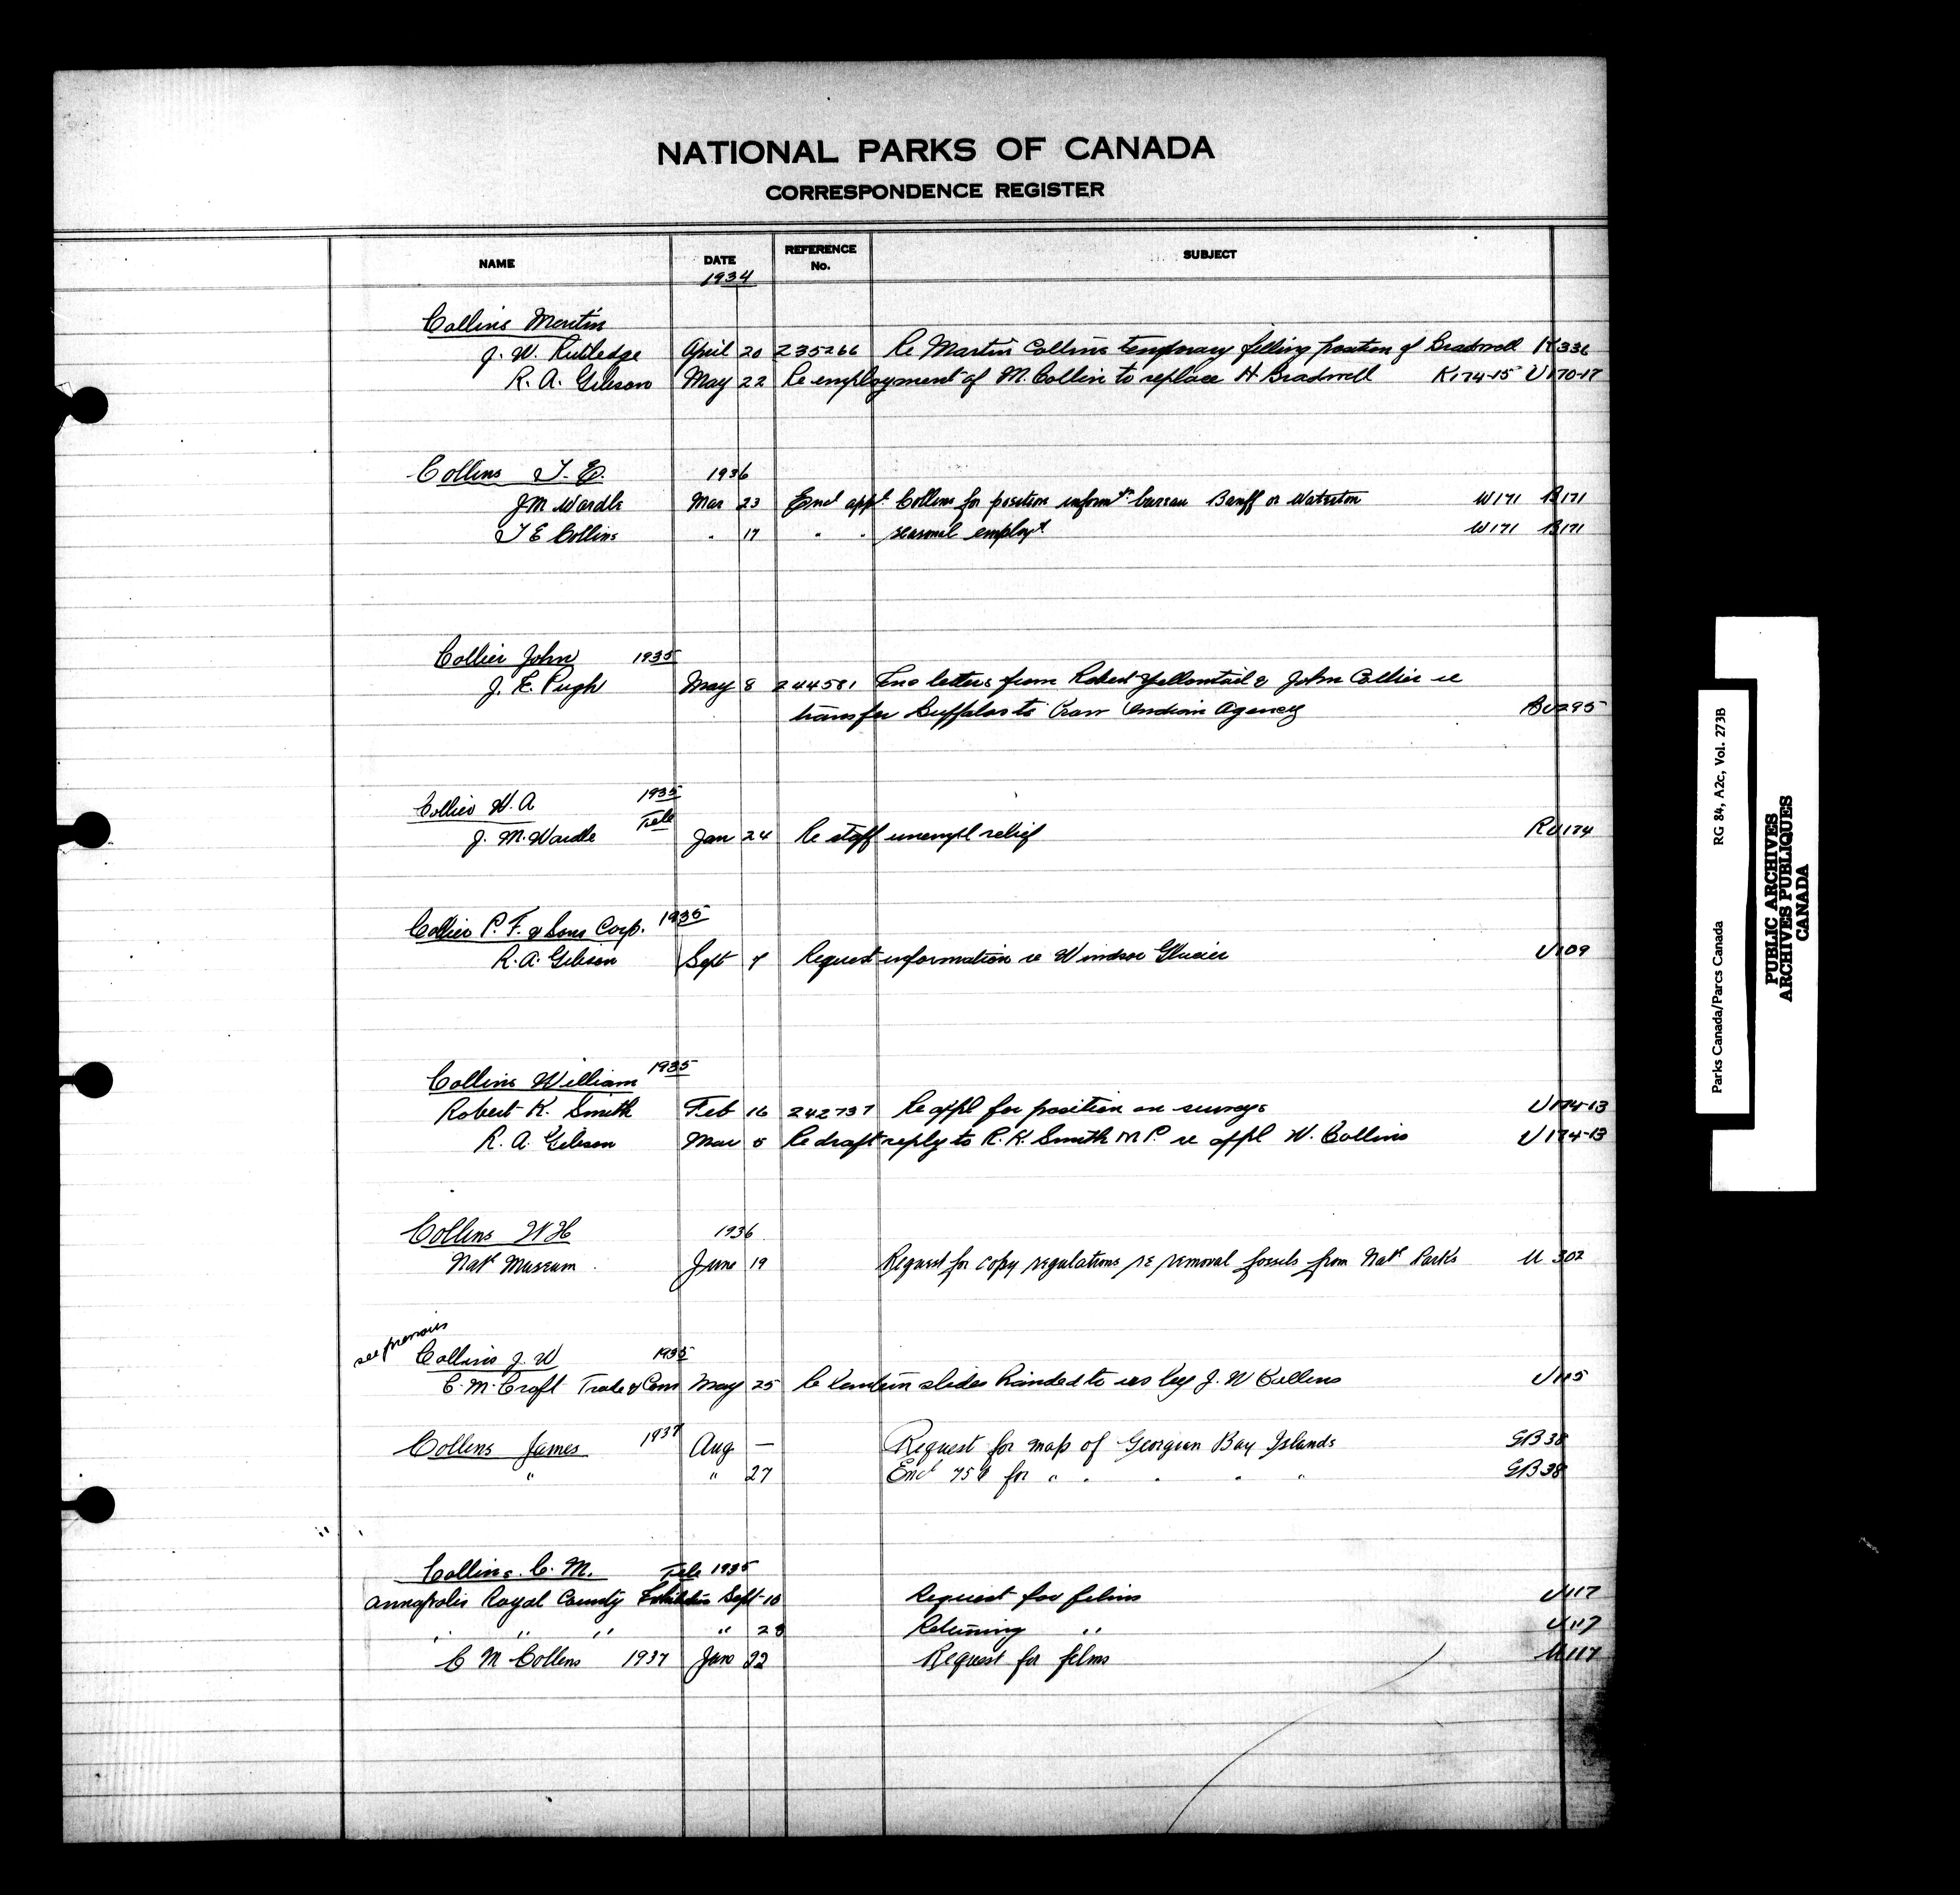 NATIONAL PARKS OF CANADA
CORRESPONDENCE REGISTER
NAME DATE REFERENCE No. SUBJECT
1934
Collins Martin
J. W. Rutledge April 20 235266 Re Martin Collins temporary filling position of Bradwell K336
R. A. Gibson May 22 Re employment of M. Collin to replace H Bradwell K174-15 U170-17
Collins T. E. 1936
J M Wardle Mar 23 Encl appt Collins for position informtn bureau Banff or Waterton W171 B171
T E Collins " 17 " " seasonal employt W171 B171
Collier John 1935
J. E. Pugh May 8 244581 Enc letters from Robert Yellowtail & John Collier re
transfer Buffalos to Crow Indian Agency BU295
Collier W. A 1935
J. M. Wardle Tele Jan 24 Re staff unempl relief RU174
Collier P. F. & Sons Corp. 1935
R. A. Gibson Sept 7 Request information re Windsor Glacier U109
Collins William 1935
Robert K. Smith Feb 16 242737 Re appl for position on surveys U174-13
R. A. Gibson Mar 5 Re draft reply to R. K. Smith M P. re appl W. Collins U174-13
Collins W H 1936
Natl Museum June 19 Request for copy regulations re removal fossils from Natl Parks U 302
see previous
Collins J. W 1935
C. M. Croft Trade & Com May 25 Re Lantern slides handed to us by J. W Collins U115
Collins James 1937 Aug — Request for map of Georgian Bay Islands GB38
" " 27 Encl 75¢ for " " " " " GB38
Collins C. M. Tele 1935
Annapolis Royal County Exhibition Sept 10 Request for films U117
" " " " 28 Returning " U117
C M Collins 1937 Jan 22 Request for films U117
Parks Canada/Parcs Canada RG 84, A2c, Vol. 273B
PUBLIC ARCHIVES
ARCHIVES PUBLIQUES
CANADA